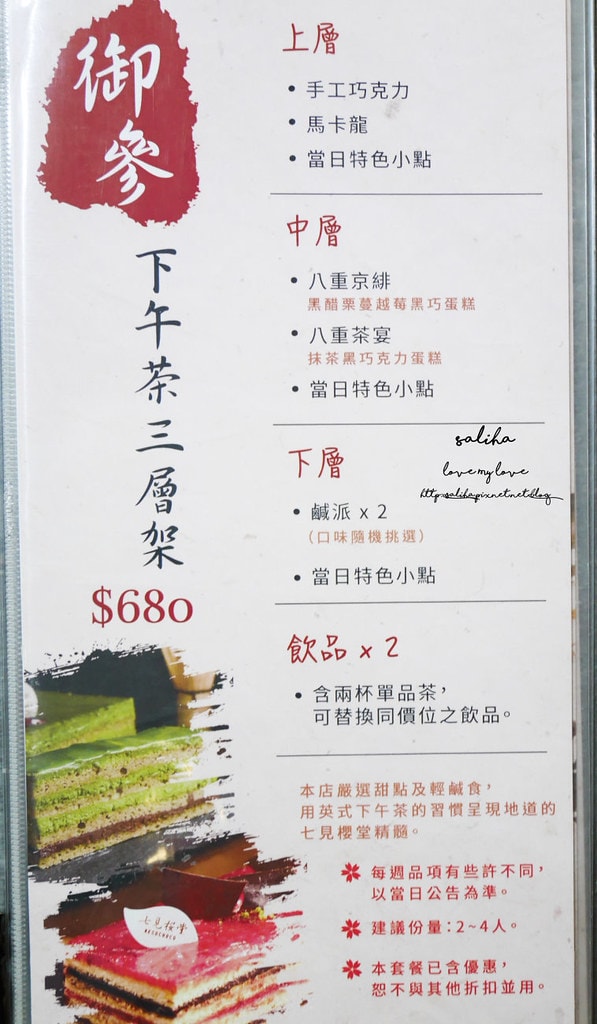 御參
下午茶三層架
$680
上層
• 手工巧克力
• 馬卡龍
• 當日特色小點
中層
• 八重京緋
黑醋栗蔓越莓黑巧蛋糕
• 八重茶宴
抹茶黑巧克力蛋糕
• 當日特色小點
saliha
love my love
http:saliha.pixnet.net/blog
下層
• 鹹派 x 2
(口味隨機挑選)
• 當日特色小點
飲品 x 2
• 含兩杯單品茶，
可替換同價位之飲品。
本店嚴選甜點及輕鹹食，
用英式下午茶的習慣呈現地道的
七見櫻堂精髓。
每週品項有些許不同，
以當日公告為準。
建議份量：2~4人。
本套餐已含優惠，
恕不與其他折扣並用。
七見桜堂